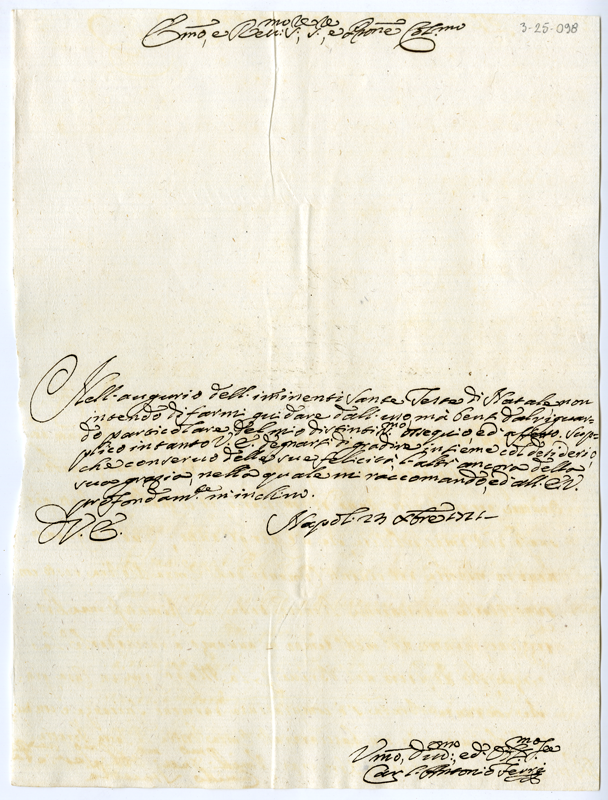 3-25-098
Emo, e Reu.mo S.re, S.re, e Prone Col.mo
Nell'augurio dell'imminenti Sante Feste di Natale non
intendo di farmi guidare dall'uso, ma bensì dal riguar-
do particolare del mio distintis.mo ossequio, ed Sup-
plico intanto V. E. degnarsi di gradire, insieme col desiderio
che conservo delle sue felicità, l'atti ancora della
sua grazia, nella quale mi raccomando, ed all'E.V.
profondam.te m'inchino.
D. V. E. Napoli 23 Xbre 1721
Vmo, Diu.mo, ed Obl.mo Se.re
Antonio